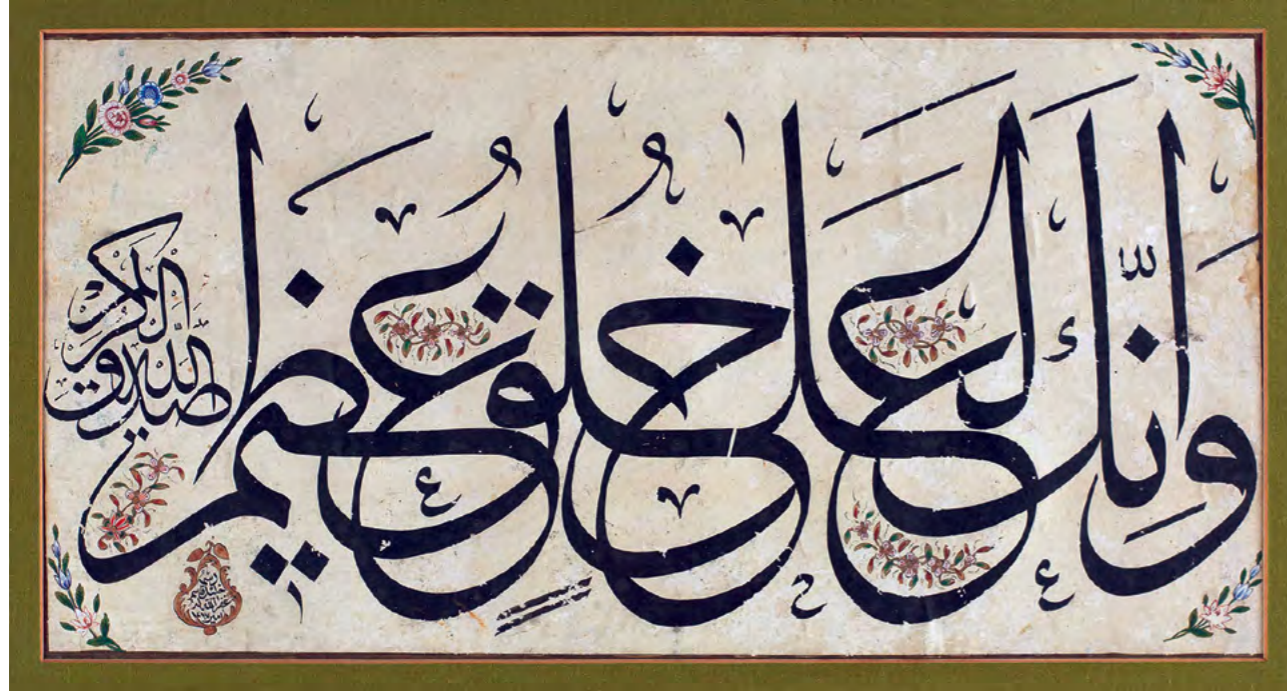 وَإِنَّكَ لَعَلَىٰ خُلُقٍ عَظِيمٍ
صدق الله الكريم